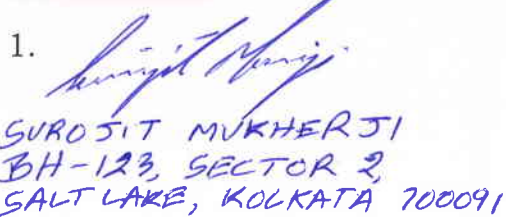 1.
SUROJIT MUKHERJI
BH-123, SECTOR 2,
SALT LAKE, KOLKATA 700091